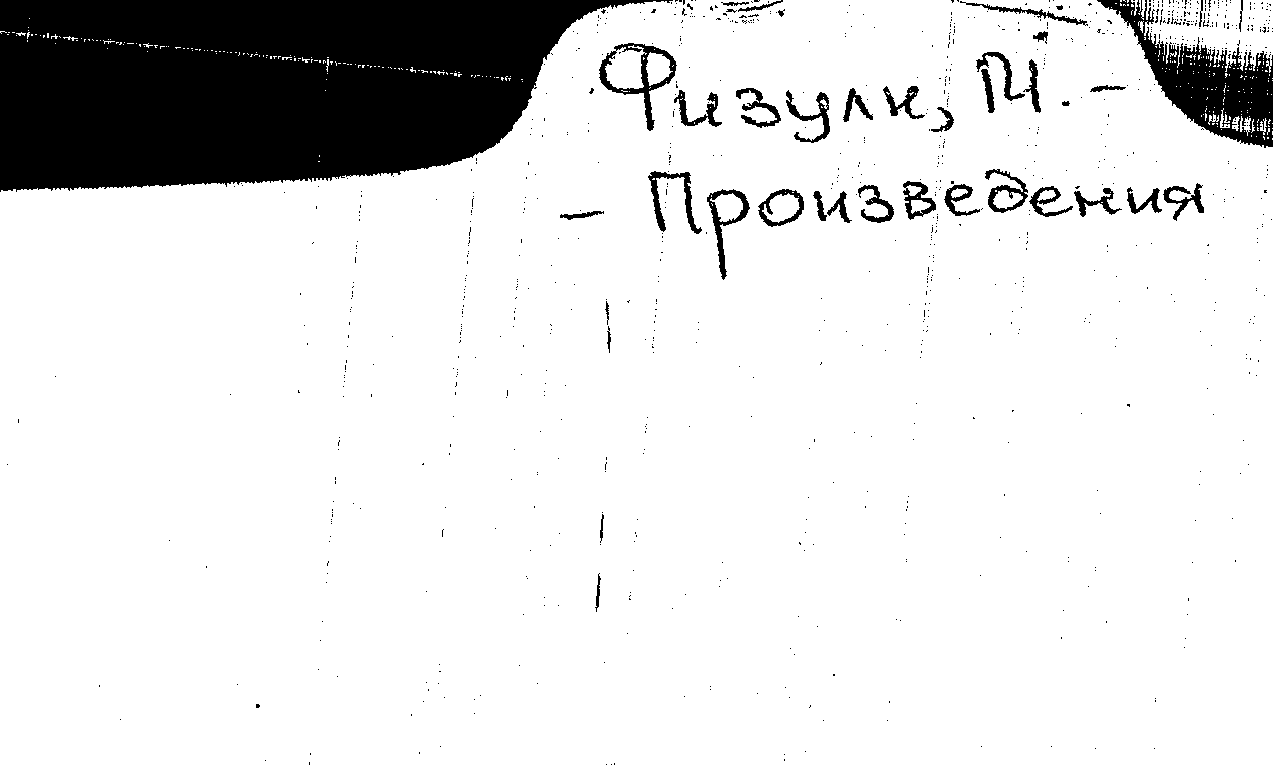 Физули, М. –
– Произведения